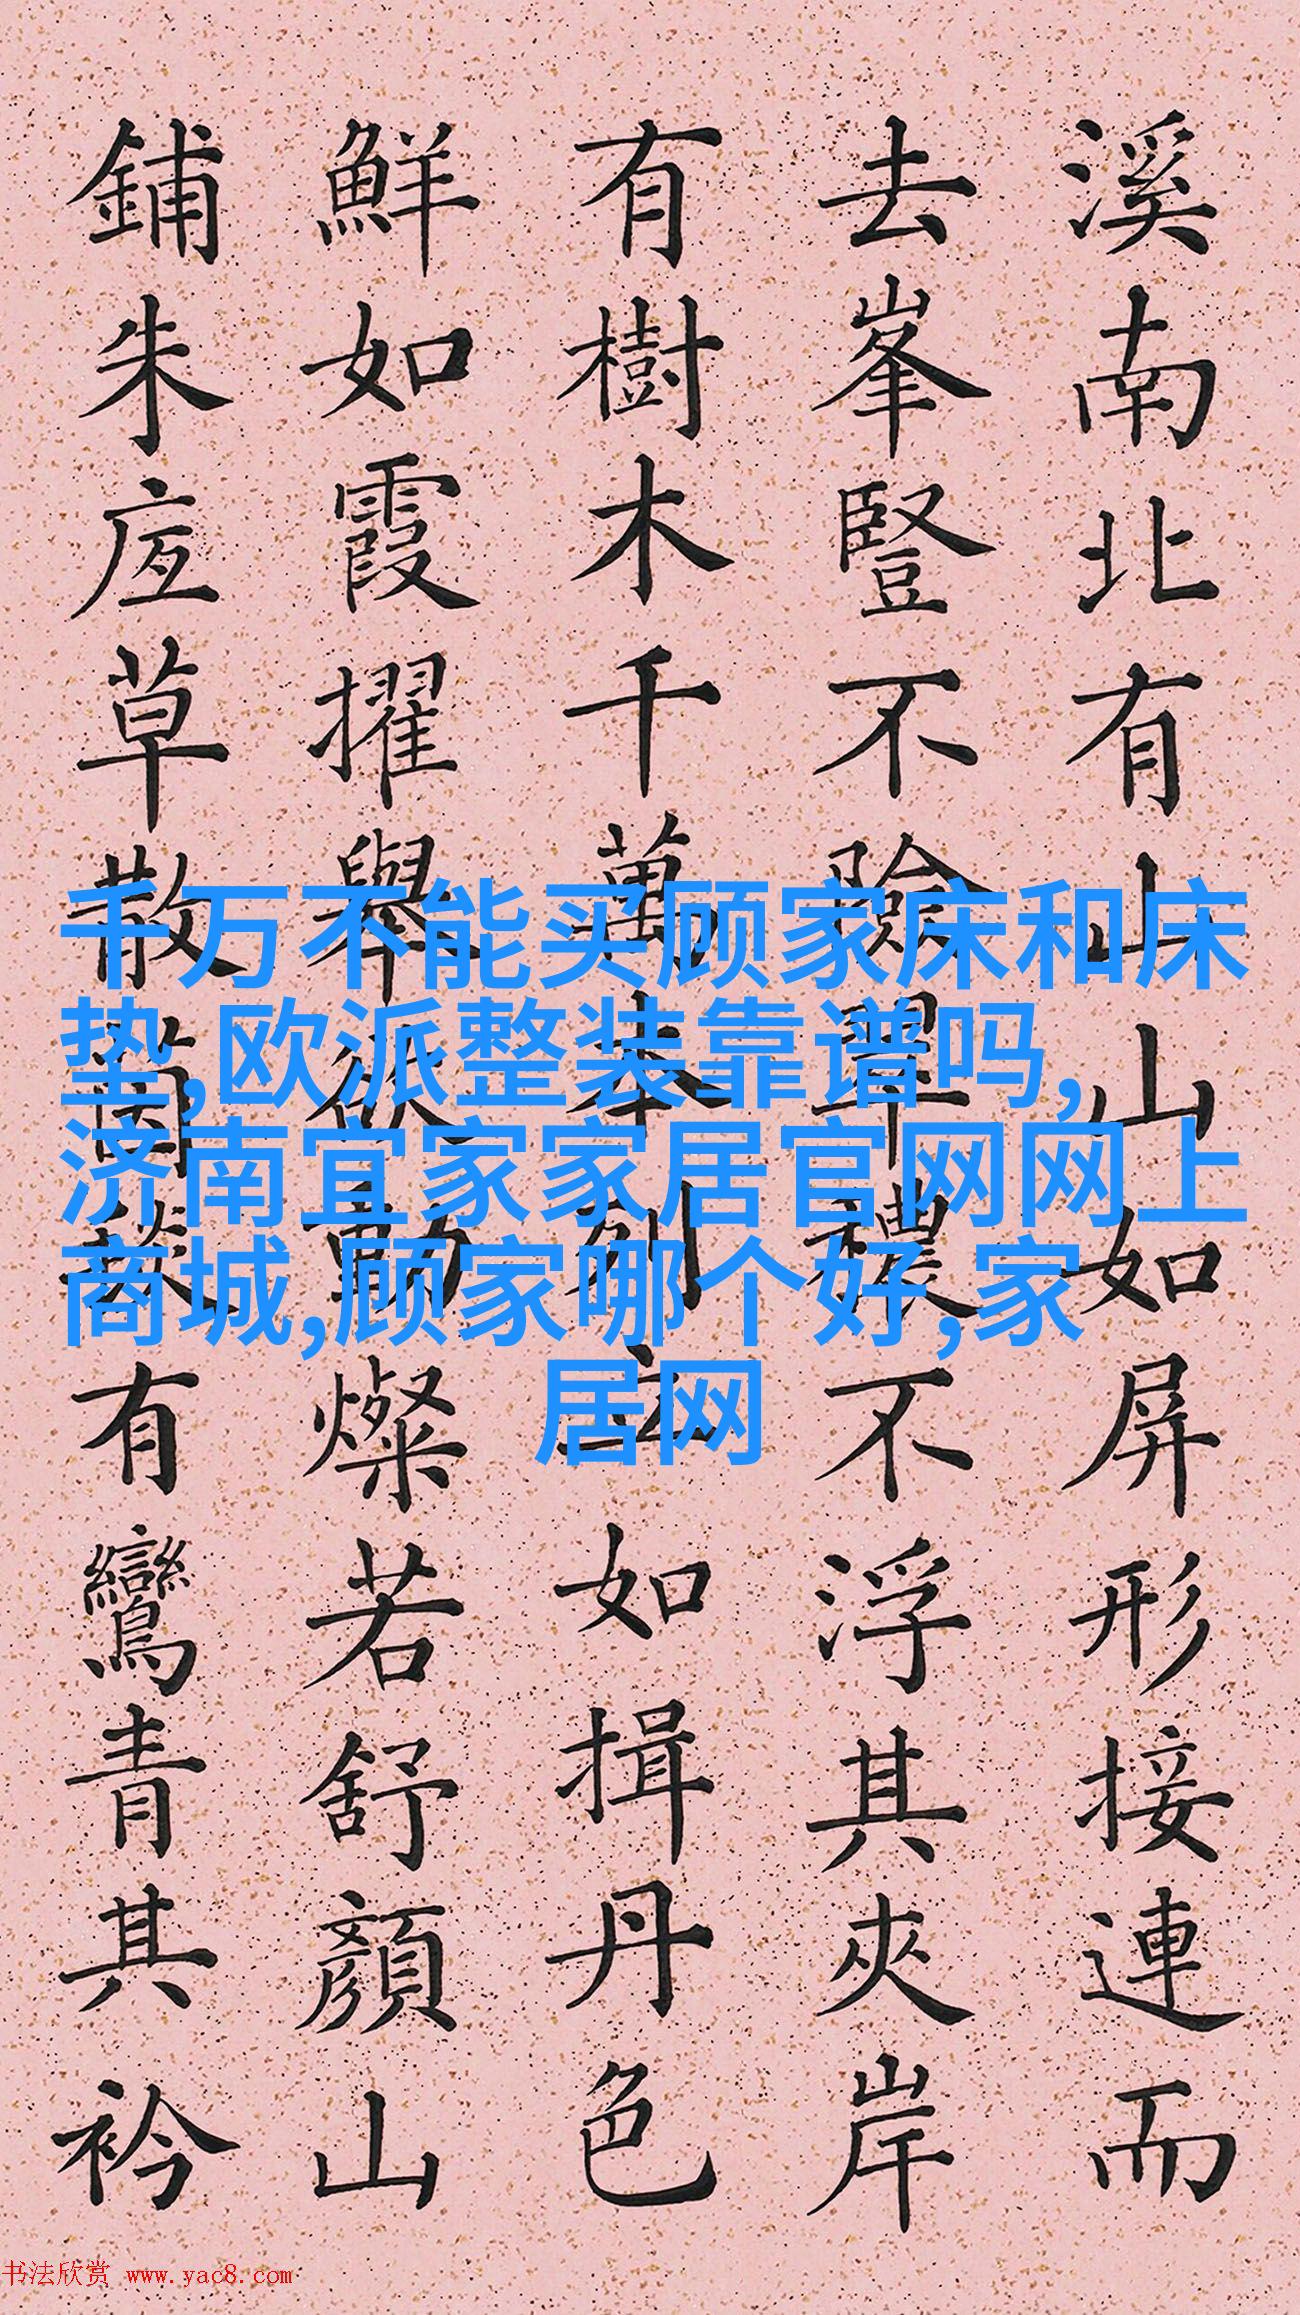 千万不能买顾家床和床
垫,欧派整装靠谱吗,
济南宜家家居官网网上
商城,顾家哪个好,家
居网
溪南北有山山如屏形接連而
去峯豎不險穠不浮其夾岸
有樹木千萬本列立如揖丹色
鮮如霞擢舉欲動燦若舒顏山
鋪朱底草散茵有鸞青其衿
书法欣赏 www.yac8.com